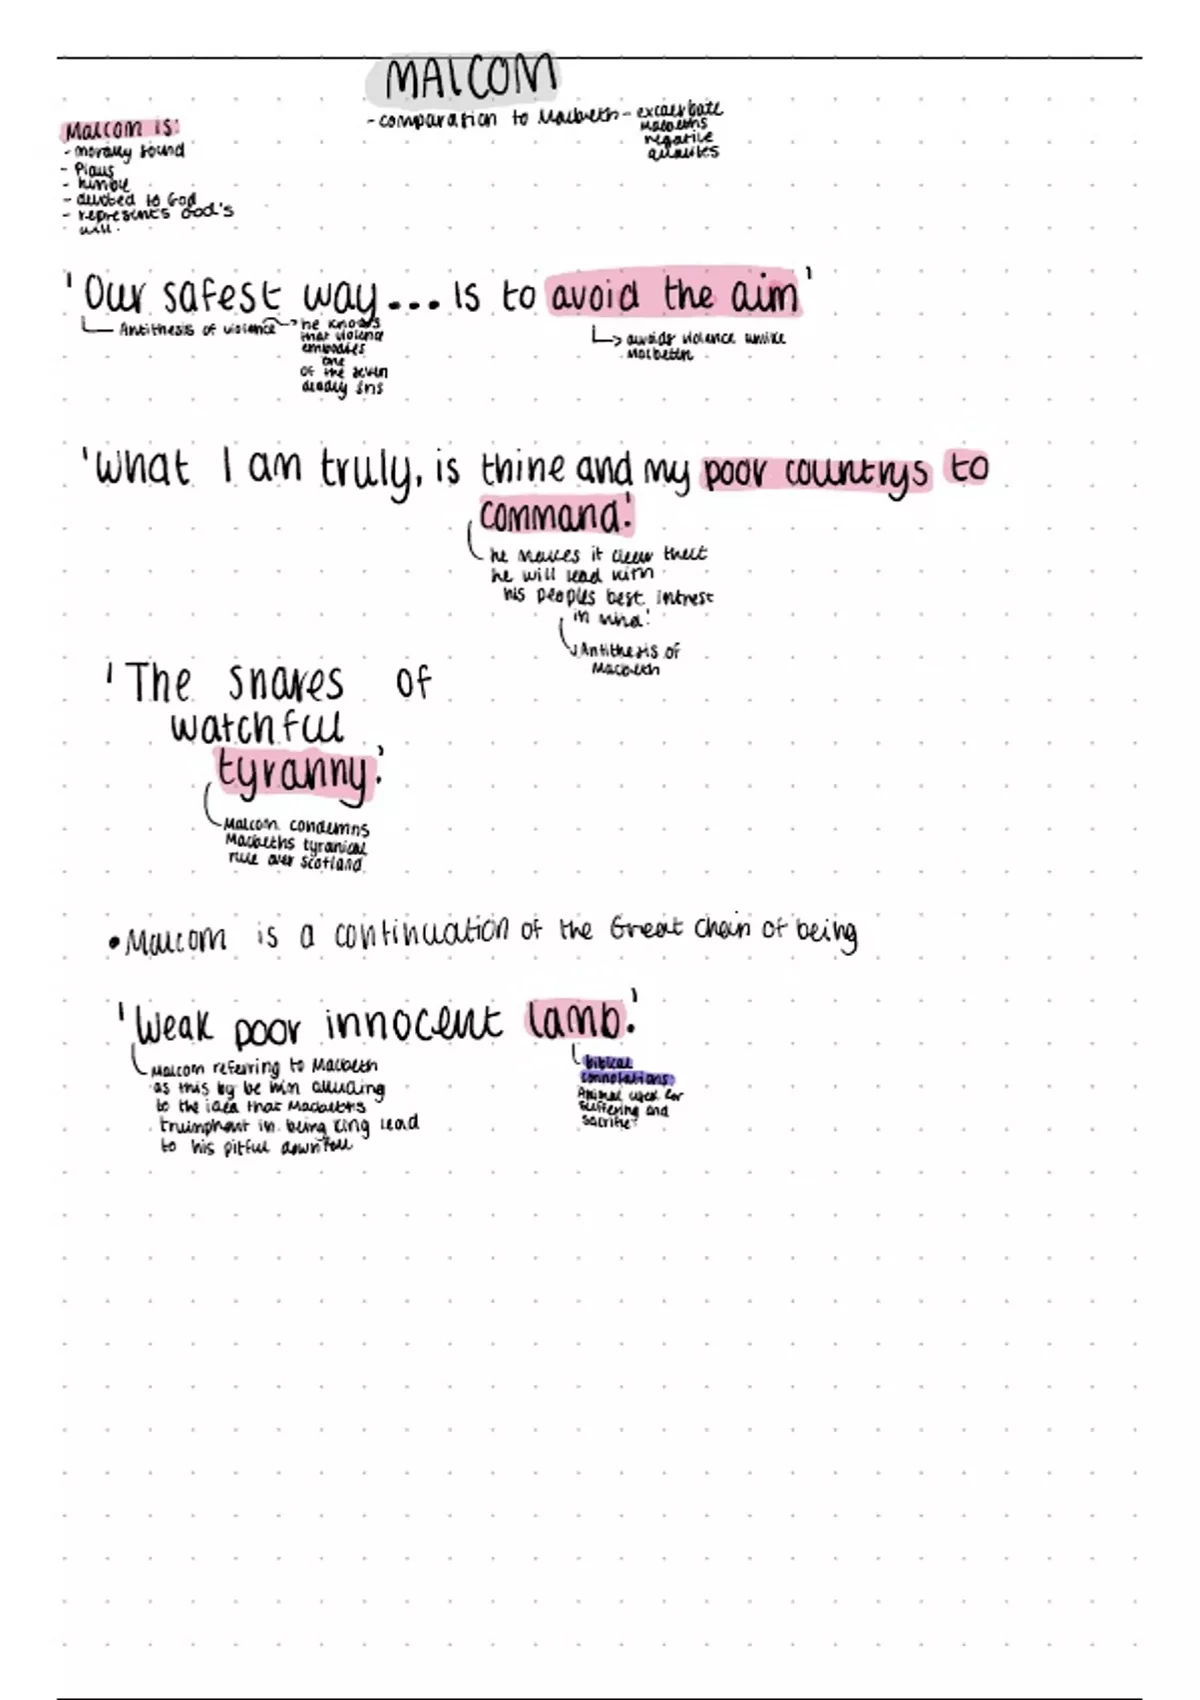 MALCOM
- comparasion to Macbeth - excaerbate
Macbeths
negative
qualites
Malcom is:
- morally sound
- Pious
- humble
- devoted to God
- represents God's
will.
'Our safest way... is to avoid the aim'
Antithesis of violence
he knows
that violence
embodies
one
of the seven
deadly sins
avoids violence unlike
Macbeth
'What I am truly, is thine and my poor countrys to
command.'
he makes it clear that
he will lead with
his peoples best intrest
in mind.'
Antithesis of
Macbeth
'The snares of
watchful
tyranny.'
Malcom condemns
Macbeths tyranical
rule over scotland.
• Malcom is a continuation of the Great Chain of being
'Weak poor innocent lamb.'
Malcom referring to Macbeth
as this by be him alluding
to the idea that Macbeths
truimphant in being king lead
to his pitful downfall
biblical
connotations
Animal used for
suffering and
sacrifie